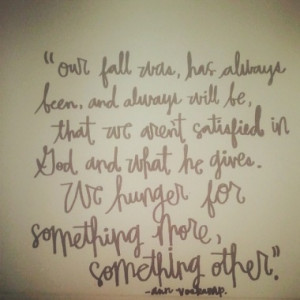 "our fall was, has always
been, and always will be,
that we aren't satisfied in
God and what he gives.
We hunger for
something more,
something other."
-ann voskamp.